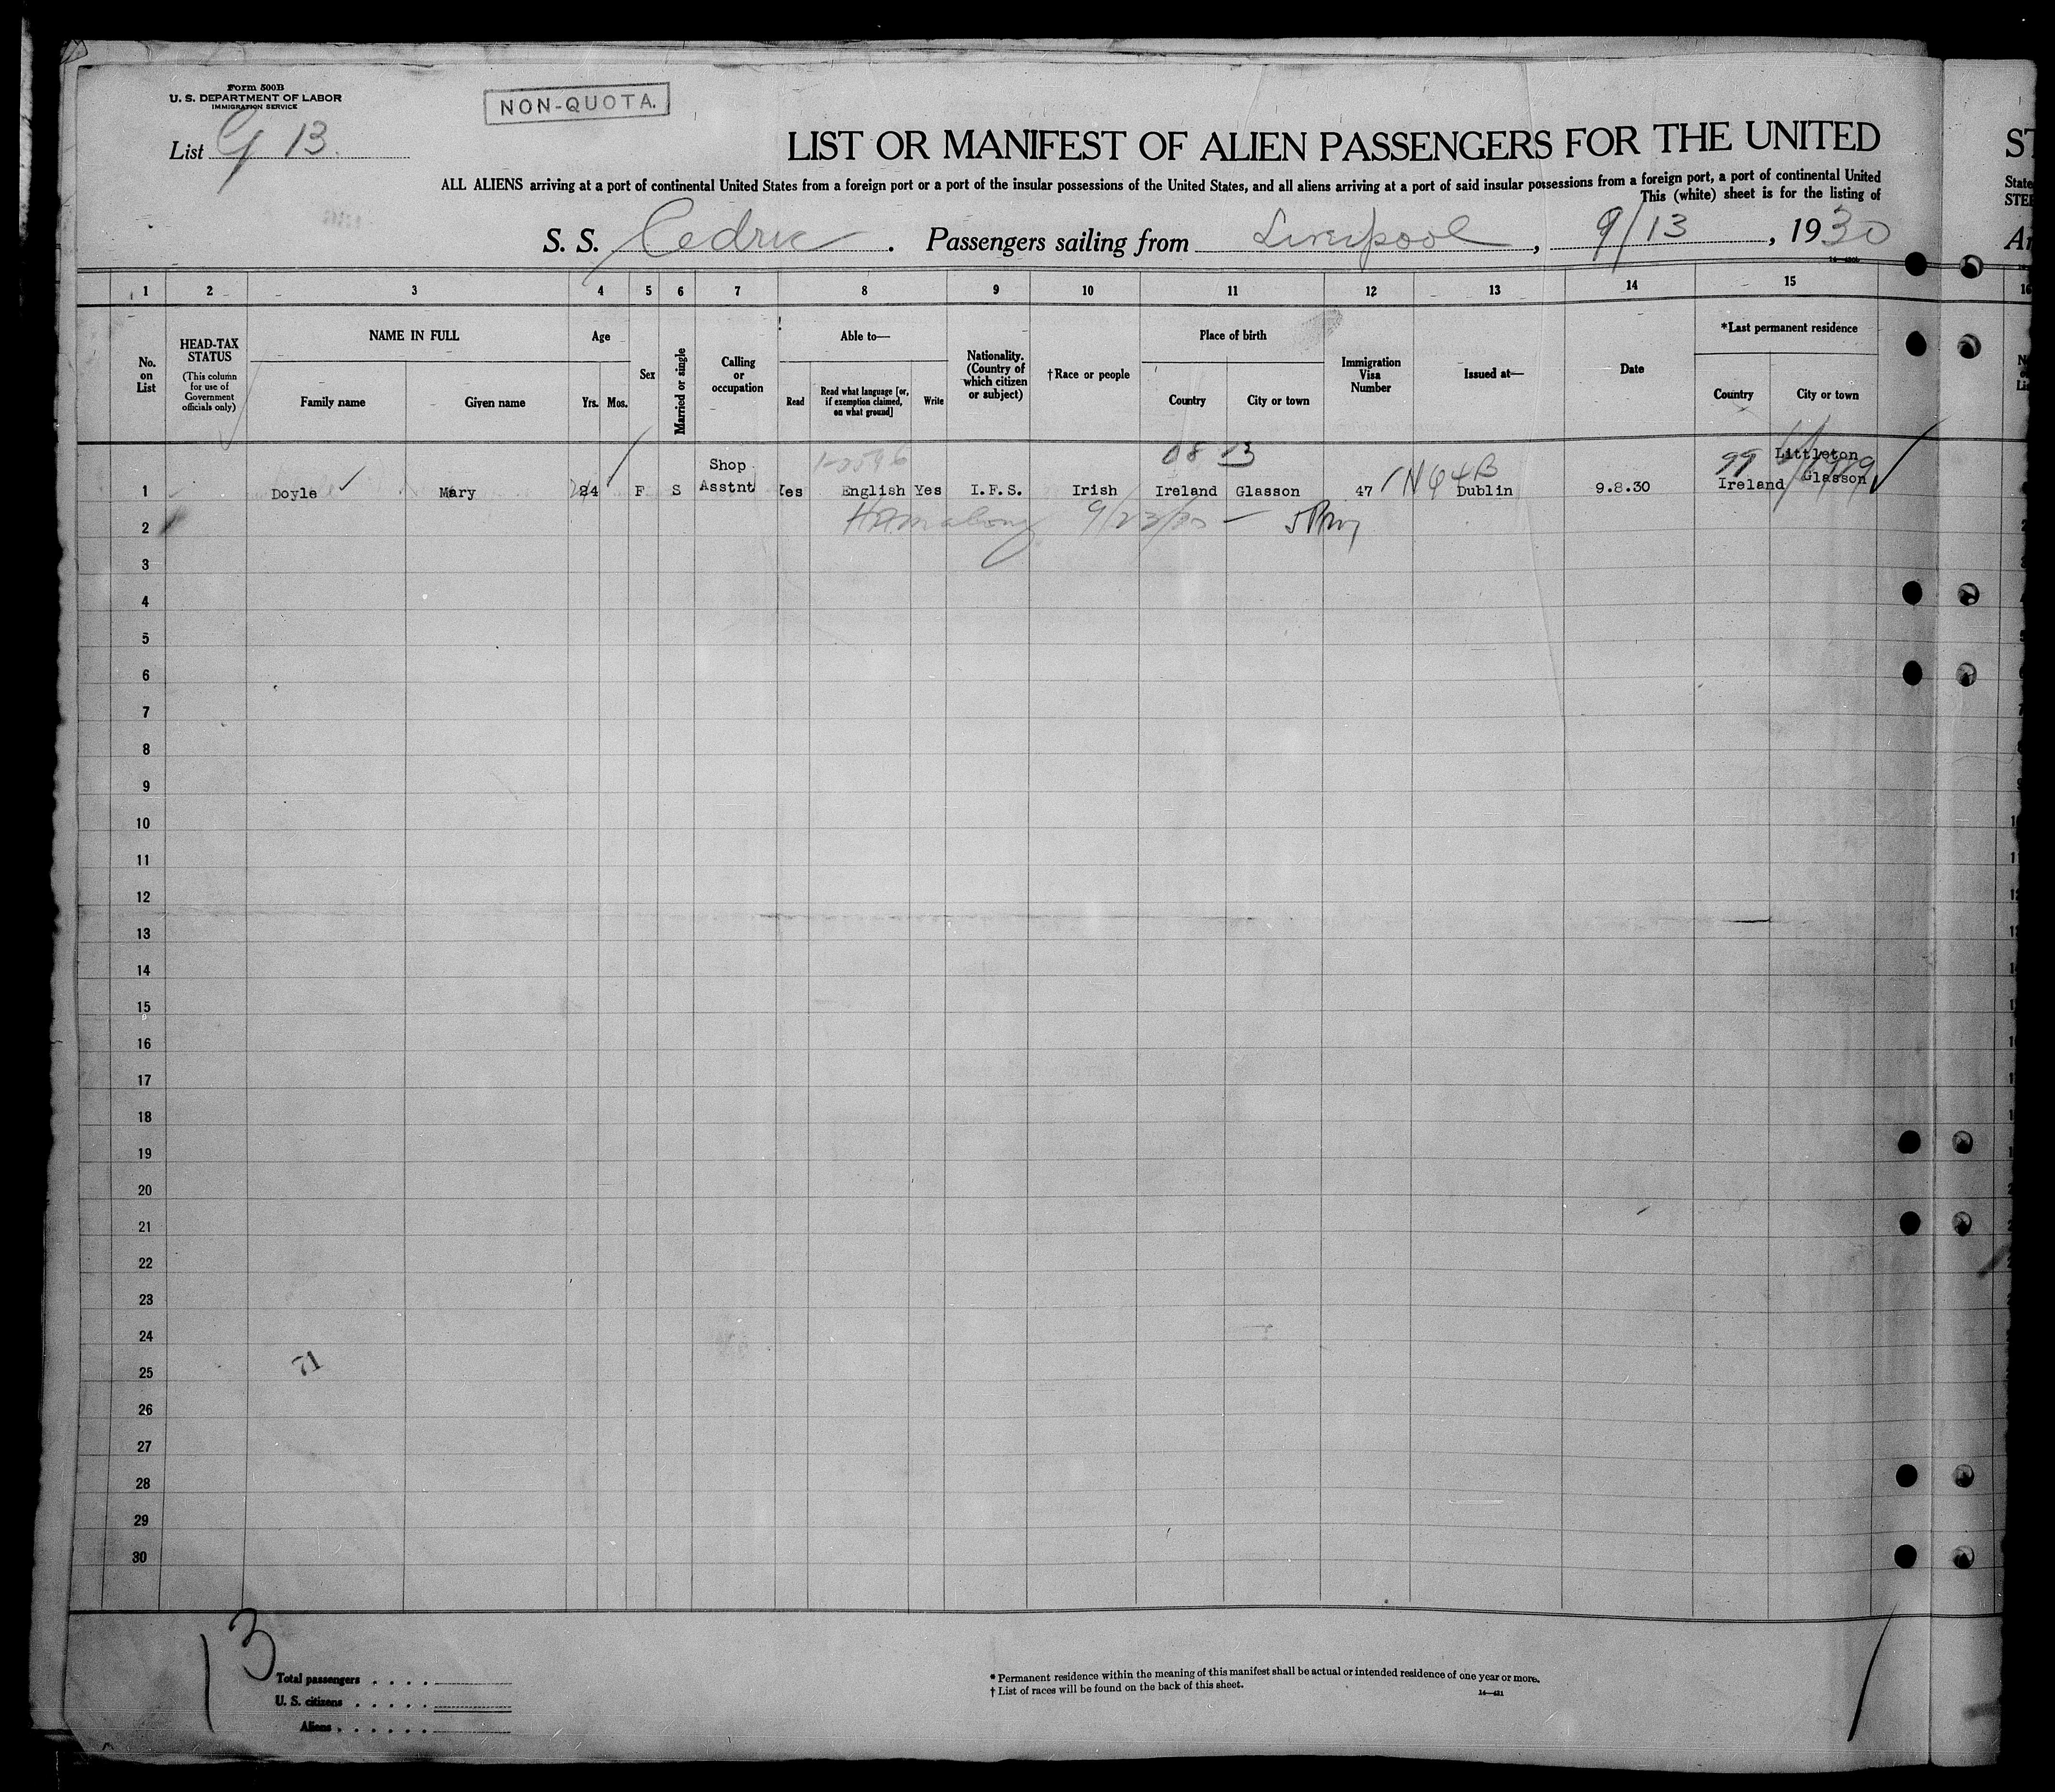 Form 500B
U. S. DEPARTMENT OF LABOR
IMMIGRATION SERVICE
NON-QUOTA.
List G 13.
LIST OR MANIFEST OF ALIEN PASSENGERS FOR THE UNITED
ST
ALL ALIENS arriving at a port of continental United States from a foreign port or a port of the insular possessions of the United States, and all aliens arriving at a port of said insular possessions from a foreign port, a port of continental United
State
This (white) sheet is for the listing of
STEE
S. S. Cedric. Passengers sailing from Liverpool, 9/13, 1930
1 2 3 4 5 6 7 8 9 10 11 12 13 14 15 16
No. on List
HEAD-TAX STATUS
(This column for use of Government officials only)
NAME IN FULL
Family name Given name
Age
Yrs. Mos.
Sex
Married or single
Calling or occupation
Able to—
Read
Read what language [or, if exemption claimed, on what ground]
Write
Nationality. (Country of which citizen or subject)
†Race or people
Place of birth
Country City or town
Immigration Visa Number
Issued at—
Date
*Last permanent residence
Country City or town
08 23
99 Littleton
1 Doyle Mary 24 F S Shop Asstnt Yes English Yes I.F.S. Irish Ireland Glasson 47 Dublin 9.8.30 Ireland Glasson
9/23/30
2
3
4
5
6
7
8
9
10
11
12
13
14
15
16
17
18
19
20
21
22
23
24
71
25
26
27
28
29
30
13
Total passengers . . . .
U. S. citizens . . . . .
Aliens . . . . . .
* Permanent residence within the meaning of this manifest shall be actual or intended residence of one year or more.
† List of races will be found on the back of this sheet.